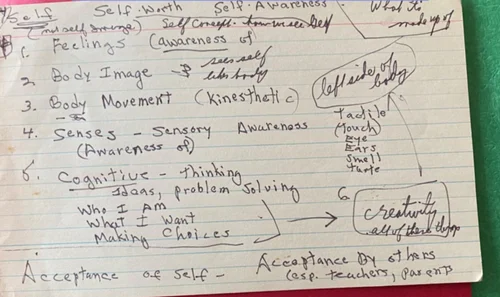 Self Self-Worth Self-Awareness What is
Self Concept - how we see self made up of
1. Feelings (awareness of
2. Body Image → sees self
like body
3. Body Movement (Kinesthetic)
left side of
body
4. Senses - Sensory Awareness
(Awareness of)
Tactile
(Touch)
Eye
Ears
Smell
Taste
5. Cognitive - Thinking
Ideas, problem solving
Who I Am
What I Want
Making Choices
6.
creativity
all of these
Acceptance of Self - Acceptance by others
(esp. teachers, parents